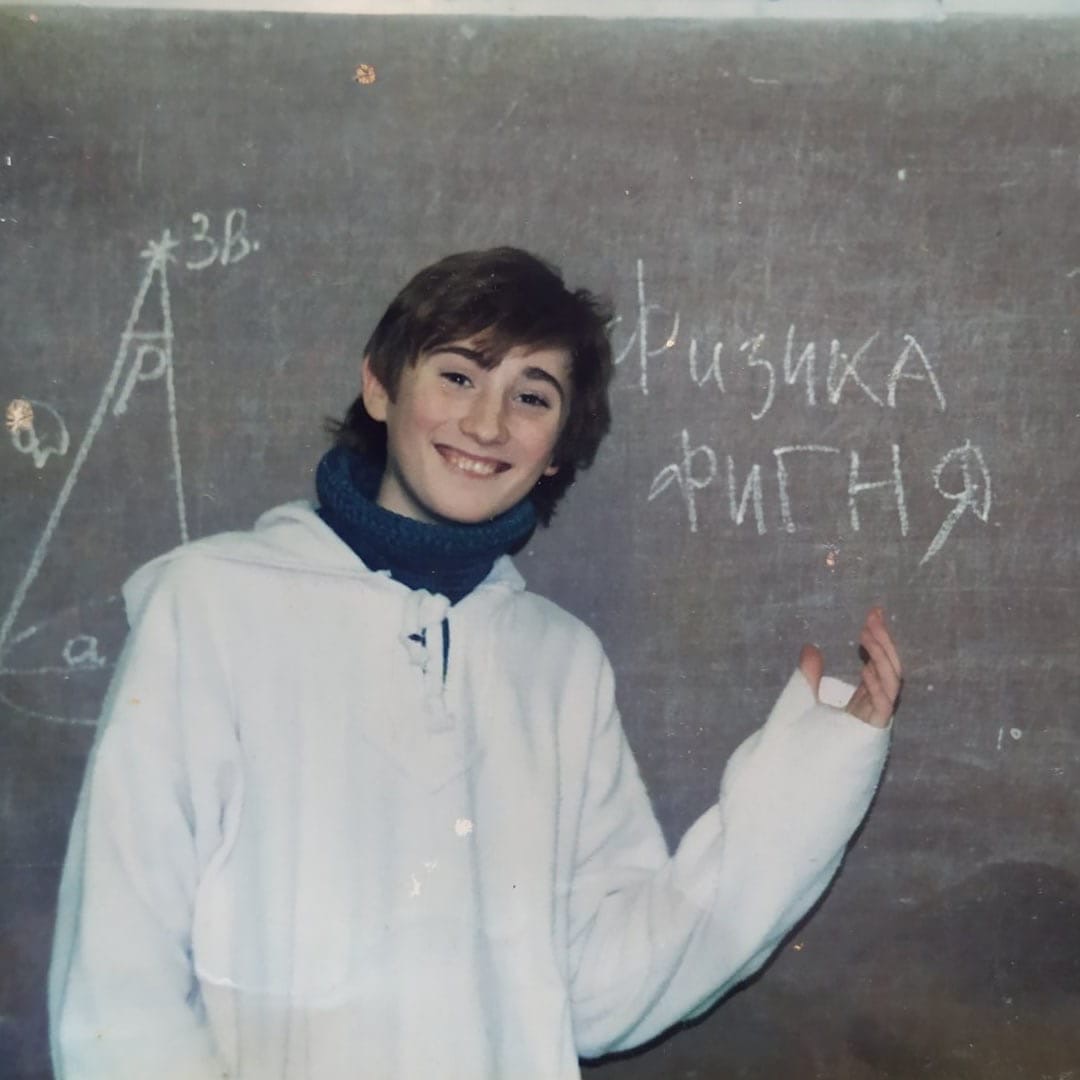 Зв.
p
Физика
ФИГНЯ
a
1°